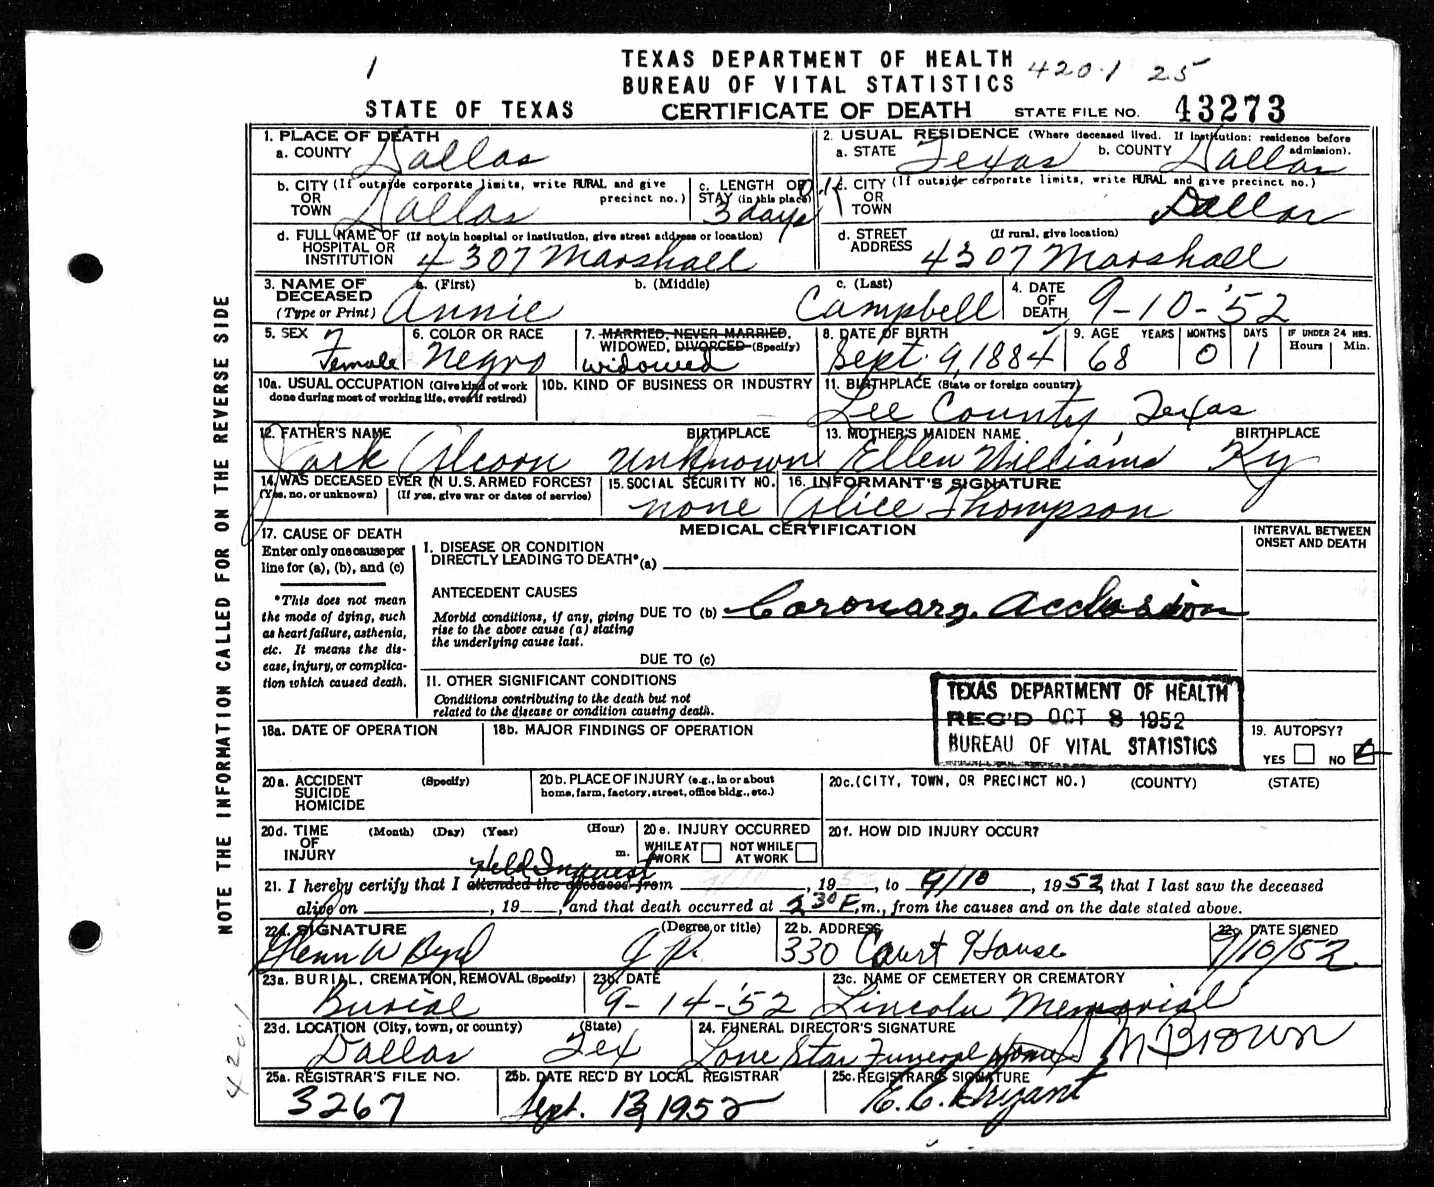 TEXAS DEPARTMENT OF HEALTH
1 BUREAU OF VITAL STATISTICS 420.1 25
STATE OF TEXAS CERTIFICATE OF DEATH STATE FILE NO. 43273
1. PLACE OF DEATH 2. USUAL RESIDENCE (Where deceased lived. If institution: residence before admission).
a. COUNTY Dallas a. STATE Texas b. COUNTY Dallas
b. CITY (If outside corporate limits, write RURAL and give precinct no.) OR TOWN Dallas c. LENGTH OF STAY (in this place) 3 days c. CITY (If outside corporate limits, write RURAL and give precinct no.) OR TOWN Dallas
d. FULL NAME OF (If not in hospital or institution, give street address or location) HOSPITAL OR INSTITUTION 4307 Marshall d. STREET ADDRESS (If rural, give location) 4307 Marshall
3. NAME OF DECEASED (Type or Print) a. (First) Annie b. (Middle) c. (Last) Campbell 4. DATE OF DEATH 9-10-'52
5. SEX Female 6. COLOR OR RACE Negro 7. MARRIED, NEVER MARRIED, WIDOWED, DIVORCED (Specify) widowed 8. DATE OF BIRTH Sept. 9, 1884 9. AGE YEARS 68 MONTHS 0 DAYS 1 IF UNDER 24 HRS. Hours Min.
10a. USUAL OCCUPATION (Give kind of work done during most of working life, even if retired) 10b. KIND OF BUSINESS OR INDUSTRY 11. BIRTHPLACE (State or foreign country) Lee County, Texas
12. FATHER'S NAME BIRTHPLACE 13. MOTHER'S MAIDEN NAME BIRTHPLACE
Jack Alcorn unknown Ellen Williams Ky
14. WAS DECEASED EVER IN U.S. ARMED FORCES? (Yes, no, or unknown) (If yes, give war or dates of service) 15. SOCIAL SECURITY NO. none 16. INFORMANT'S SIGNATURE Alice Thompson
MEDICAL CERTIFICATION
INTERVAL BETWEEN ONSET AND DEATH
17. CAUSE OF DEATH
Enter only one cause per line for (a), (b), and (c)
I. DISEASE OR CONDITION DIRECTLY LEADING TO DEATH*(a)
*This does not mean the mode of dying, such as heart failure, asthenia, etc. It means the disease, injury, or complication which caused death.
ANTECEDENT CAUSES
Morbid conditions, if any, giving rise to the above cause (a) stating the underlying cause last.
DUE TO (b) Coronary Acclusion
DUE TO (c)
II. OTHER SIGNIFICANT CONDITIONS
Conditions contributing to the death but not related to the disease or condition causing death.
TEXAS DEPARTMENT OF HEALTH
REC'D OCT 8 1952
BUREAU OF VITAL STATISTICS
18a. DATE OF OPERATION 18b. MAJOR FINDINGS OF OPERATION 19. AUTOPSY?
YES NO
20a. ACCIDENT SUICIDE HOMICIDE (Specify) 20b. PLACE OF INJURY (e.g., in or about home, farm, factory, street, office bldg., etc.) 20c. (CITY, TOWN, OR PRECINCT NO.) (COUNTY) (STATE)
20d. TIME OF INJURY (Month) (Day) (Year) (Hour) m. 20e. INJURY OCCURRED WHILE AT WORK NOT WHILE AT WORK 20f. HOW DID INJURY OCCUR?
Held Inquest
21. I hereby certify that I attended the deceased from 9/10, 1952, to 9/10, 1952, that I last saw the deceased
alive on , 19 , and that death occurred at 2 30 P.m., from the causes and on the date stated above.
22a. SIGNATURE (Degree or title) 22b. ADDRESS 22c. DATE SIGNED
Glenn W Byrd J.P. 330 Court House 9/10/52
23a. BURIAL, CREMATION, REMOVAL (Specify) 23b. DATE 23c. NAME OF CEMETERY OR CREMATORY
Burial 9-14-'52 Lincoln Memorial
23d. LOCATION (City, town, or county) (State) 24. FUNERAL DIRECTOR'S SIGNATURE
Dallas Tex Lone Star Funeral Home M Brown
25a. REGISTRAR'S FILE NO. 25b. DATE REC'D BY LOCAL REGISTRAR 25c. REGISTRAR'S SIGNATURE
3267 Sept. 13, 1952 E.C. Bryant
NOTE THE INFORMATION CALLED FOR ON THE REVERSE SIDE
420.1